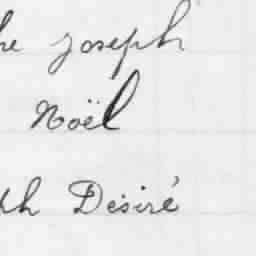 he joseph
Noël
ph Désiré